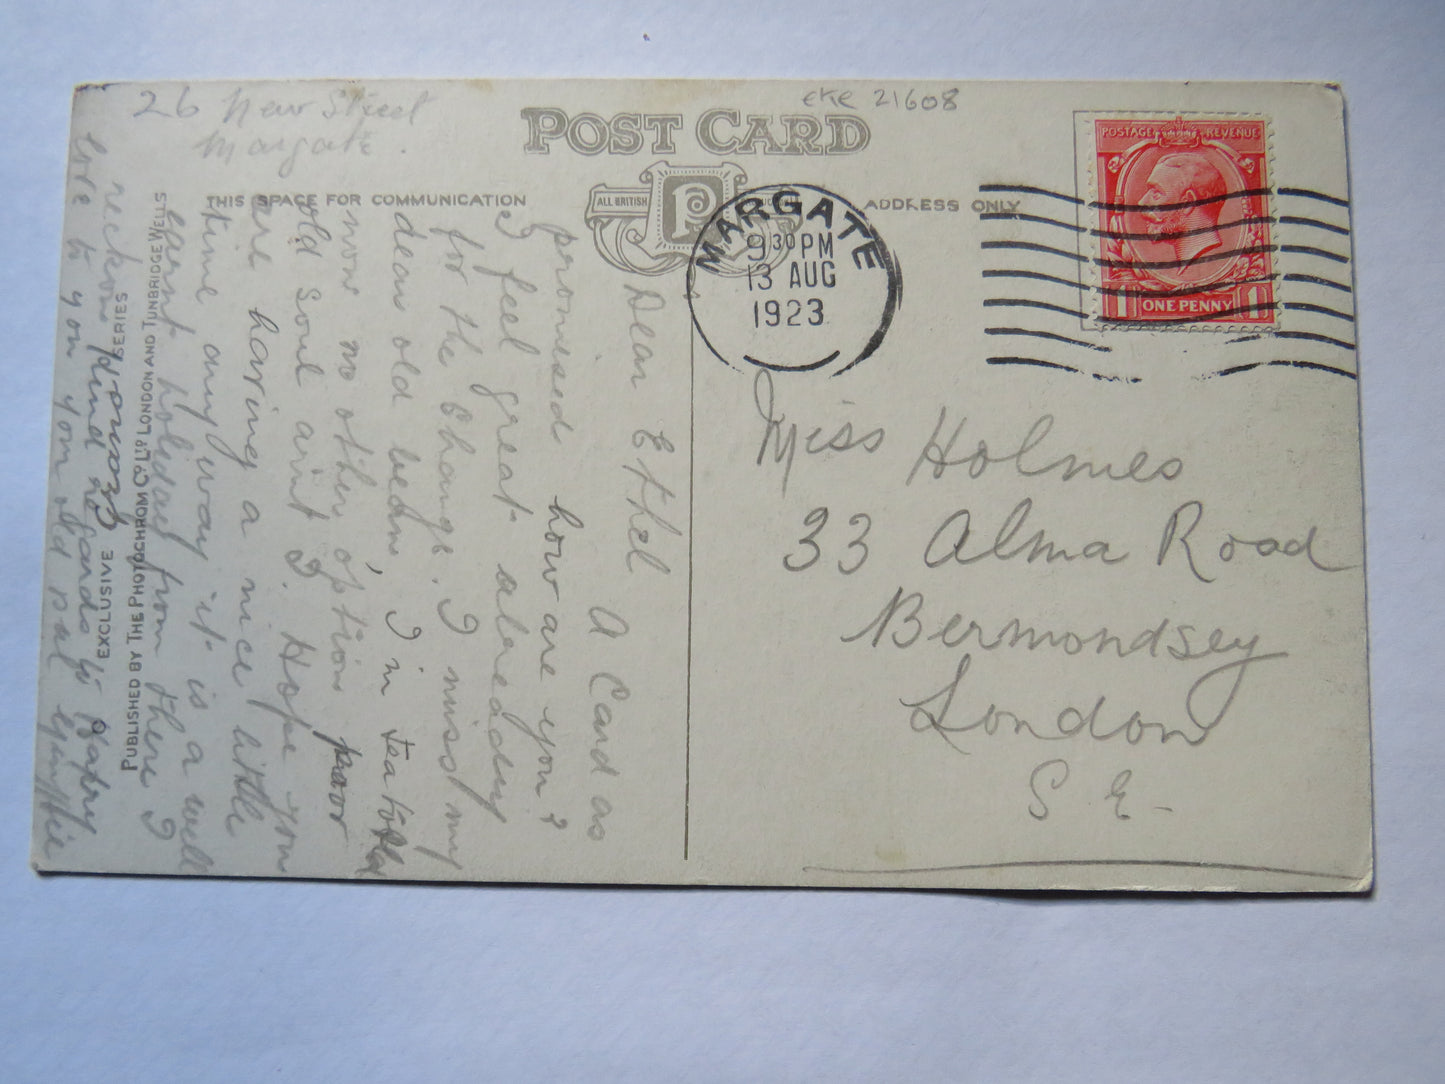 26 New Street
Margate.
POST CARD
eke 21608
THIS SPACE FOR COMMUNICATION
ALL BRITISH
P
ADDRESS ONLY
MARGATE
9 30 PM
13 AUG
1923
POSTAGE REVENUE
1 ONE PENNY 1
Miss Holmes
33 Alma Road
Bermondsey
London
S E-
Dear Ethel
A Card as
promised how are you?
I feel great already
for the Change. I miss my
dear old bedm, I'm
now no other option poor
old soul aint I. Hope you
are having a nice little
time any way it is a well
earnt holiday from there I
reckon kind regards to
love to you your old pal
EXCLUSIVE SERIES
PUBLISHED BY THE PHOTOCHROM CO. LTD. LONDON AND TUNBRIDGE WELLS